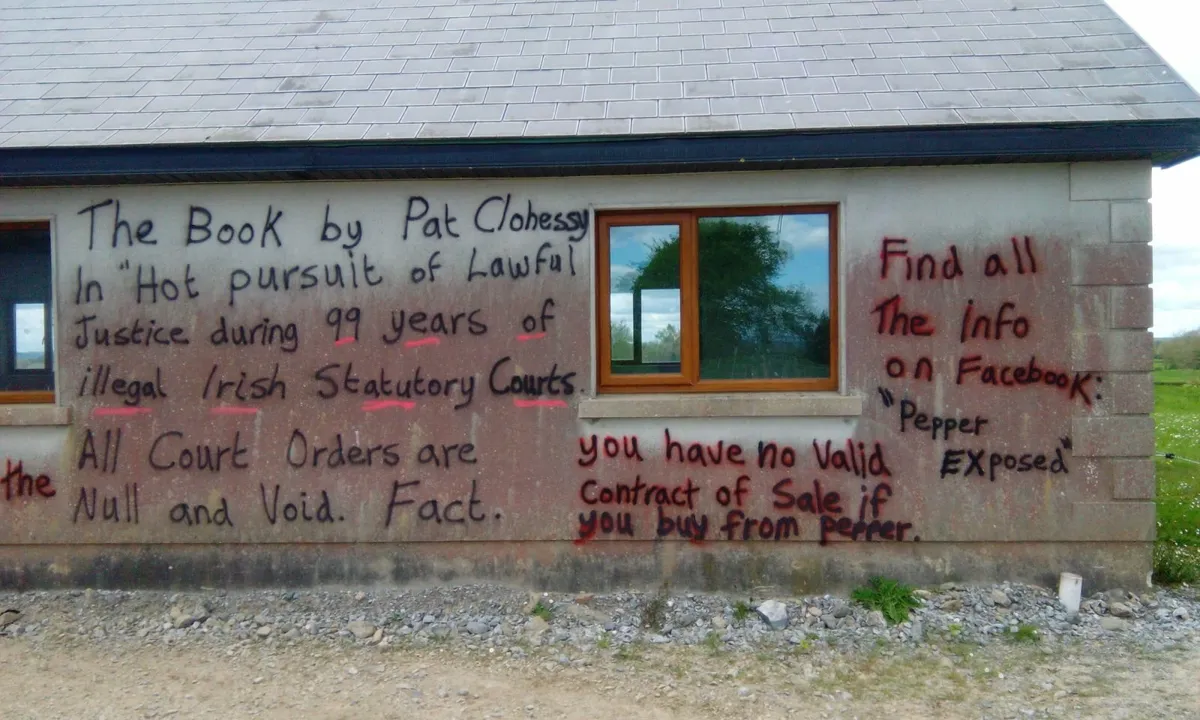 The Book by Pat Clohessy
In "Hot pursuit of Lawful
Justice during 99 years of
illegal Irish Statutory Courts.
All Court Orders are
Null and Void. Fact.
the
you have no Valid
Contract of Sale if
you buy from pepper.
Find all
The Info
on Facebook:
"Pepper
EXposed"